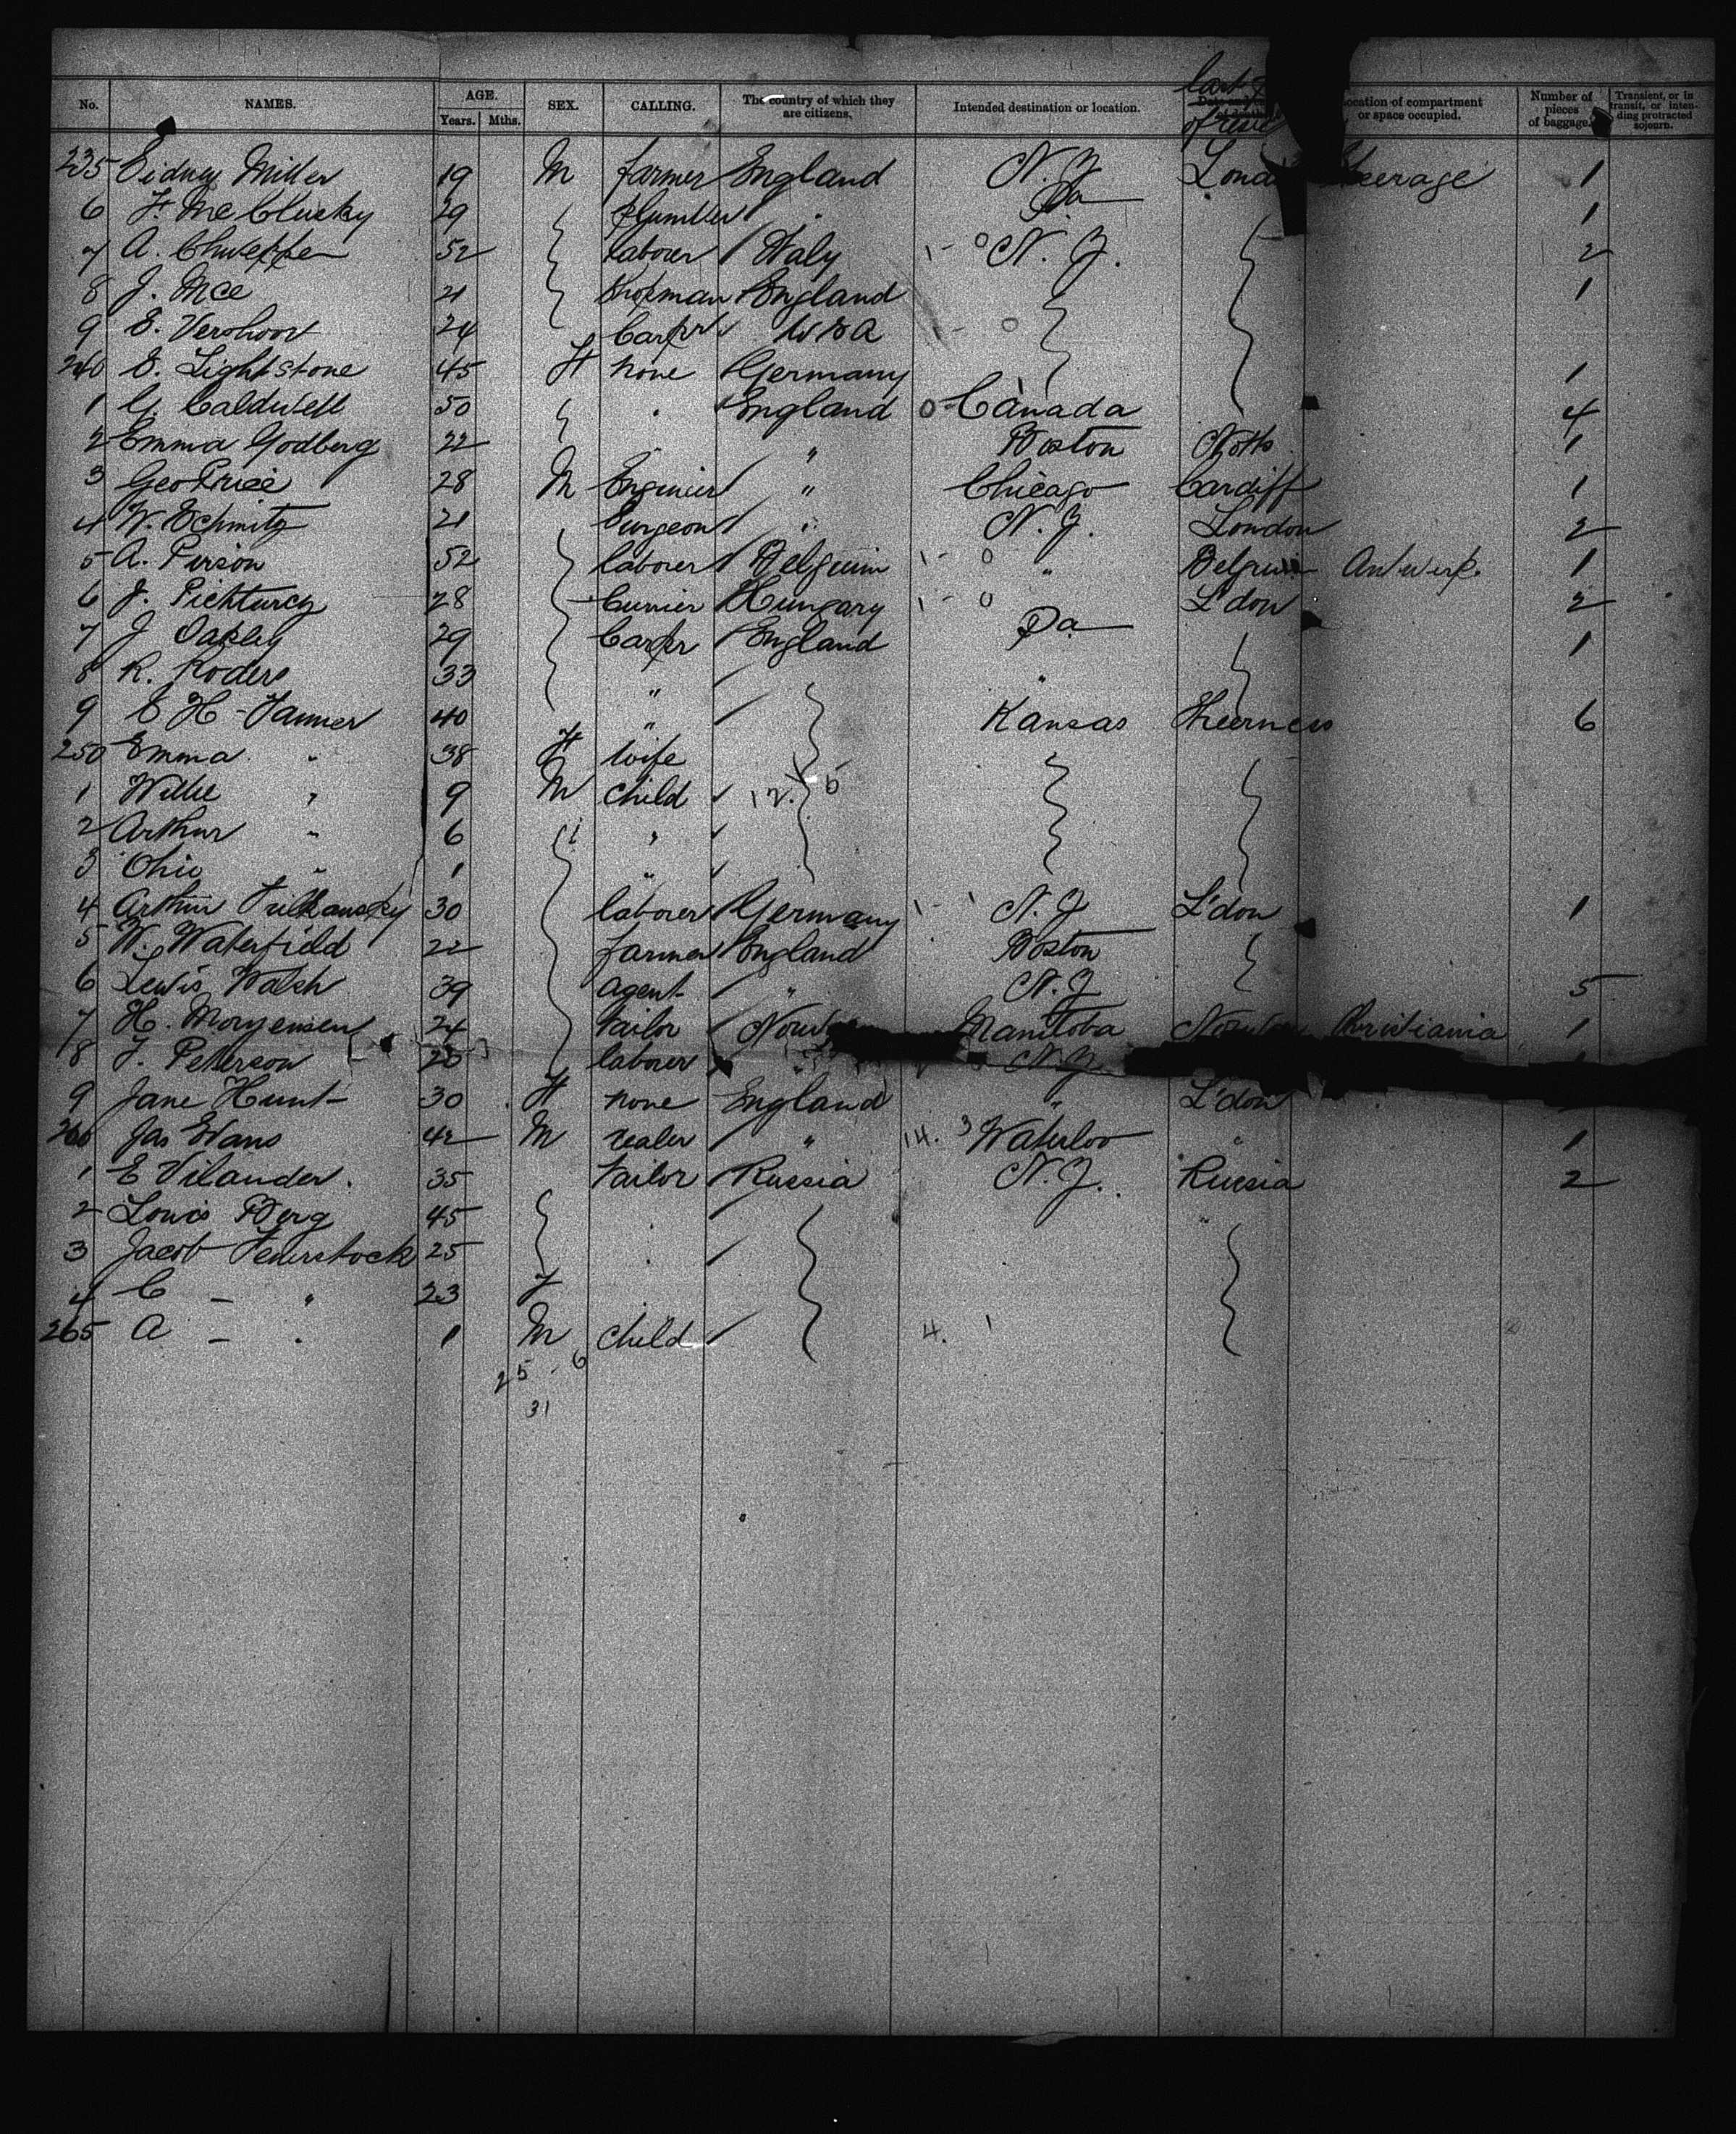 No. NAMES. AGE. Years. Mths. SEX. CALLING. The country of which they are citizens. Intended destination or location. last of resi Location of compartment or space occupied. Number of pieces of baggage. Transient, or in transit, or intending protracted sojourn.
235 Sidney Miller 19 M farmer England N.Y. Lond Steerage 1
6 F. Mc Clusky 29 plumber " Pa 1
7 A. 52 laborer Italy 1 - 0 N.Y. 2
8 J. Mce 21 Shopman England 1
9 E. Vershoor 24 Carpr USA - 0
240 E. Lightstone 45 F none Germany 1
1 G. Caldwell 50 " England 0 Canada 4
2 Emma Godberg 22 " " Boston Notts 1
3 Geo Price 28 M Enginier " Chicago Cardiff 1
4 W. Schmitz 21 Surgeon " N.Y. London 2
5 A. Pirson 52 laborer Belguim 1 - 0 " Belguim Antwerp. 1
6 J. 28 Currier Hungary 1 - 0 L'don 2
7 J Oakley 29 Carpr England Pa 1
8 R. Roders 33 " "
9 E H - Tanner 40 " Kansas Sheerness 6
250 Emma " 38 F wife
1 Willie " 9 M child 12. 5
2 Arthur " 6 "
3 Ohio " 1 "
4 Arthur 30 laborer Germany 1 - 1 N.Y L'don 1
5 W. Waterfield 22 farmer England Boston
6 Lewis Walsh 39 agent " N.Y 5
7 H. Morgensen 24 tailor Norw Manitoba Norway Christiania 1
8 J. Peterson 20 laborer N.Y.
9 Jane Hunt 30 F none England " L'don
260 Jas Evans 42 M " 14. 3 Waterloo " 1
1 E Vilander. 35 tailor Russia N.Y. Russia 2
2 Louis Berg 45 " "
3 Jacob Feuerstock 25 "
4 C - " 23 F
265 A - " 1 M child 4. 1
25 - 6
31